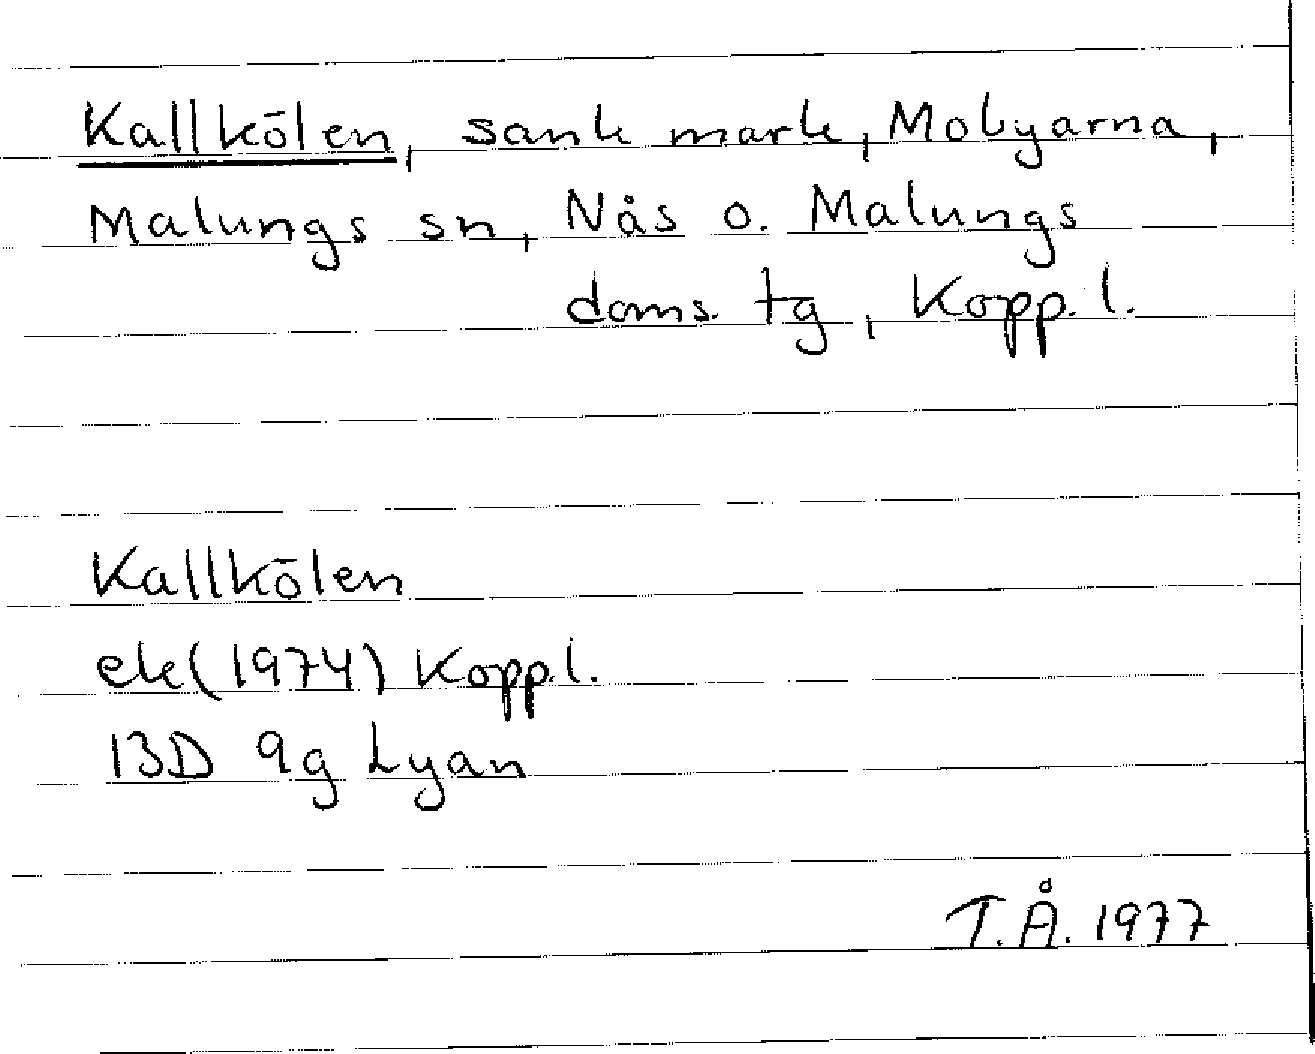 Kallkölen, sank mark, Mobyarna,
Malungs sn, Nås o. Malungs
doms. tg, Kopp. l.
Kallkölen
ek(1974) Kopp.l.
13D 9g Lyan
T.Å. 1977